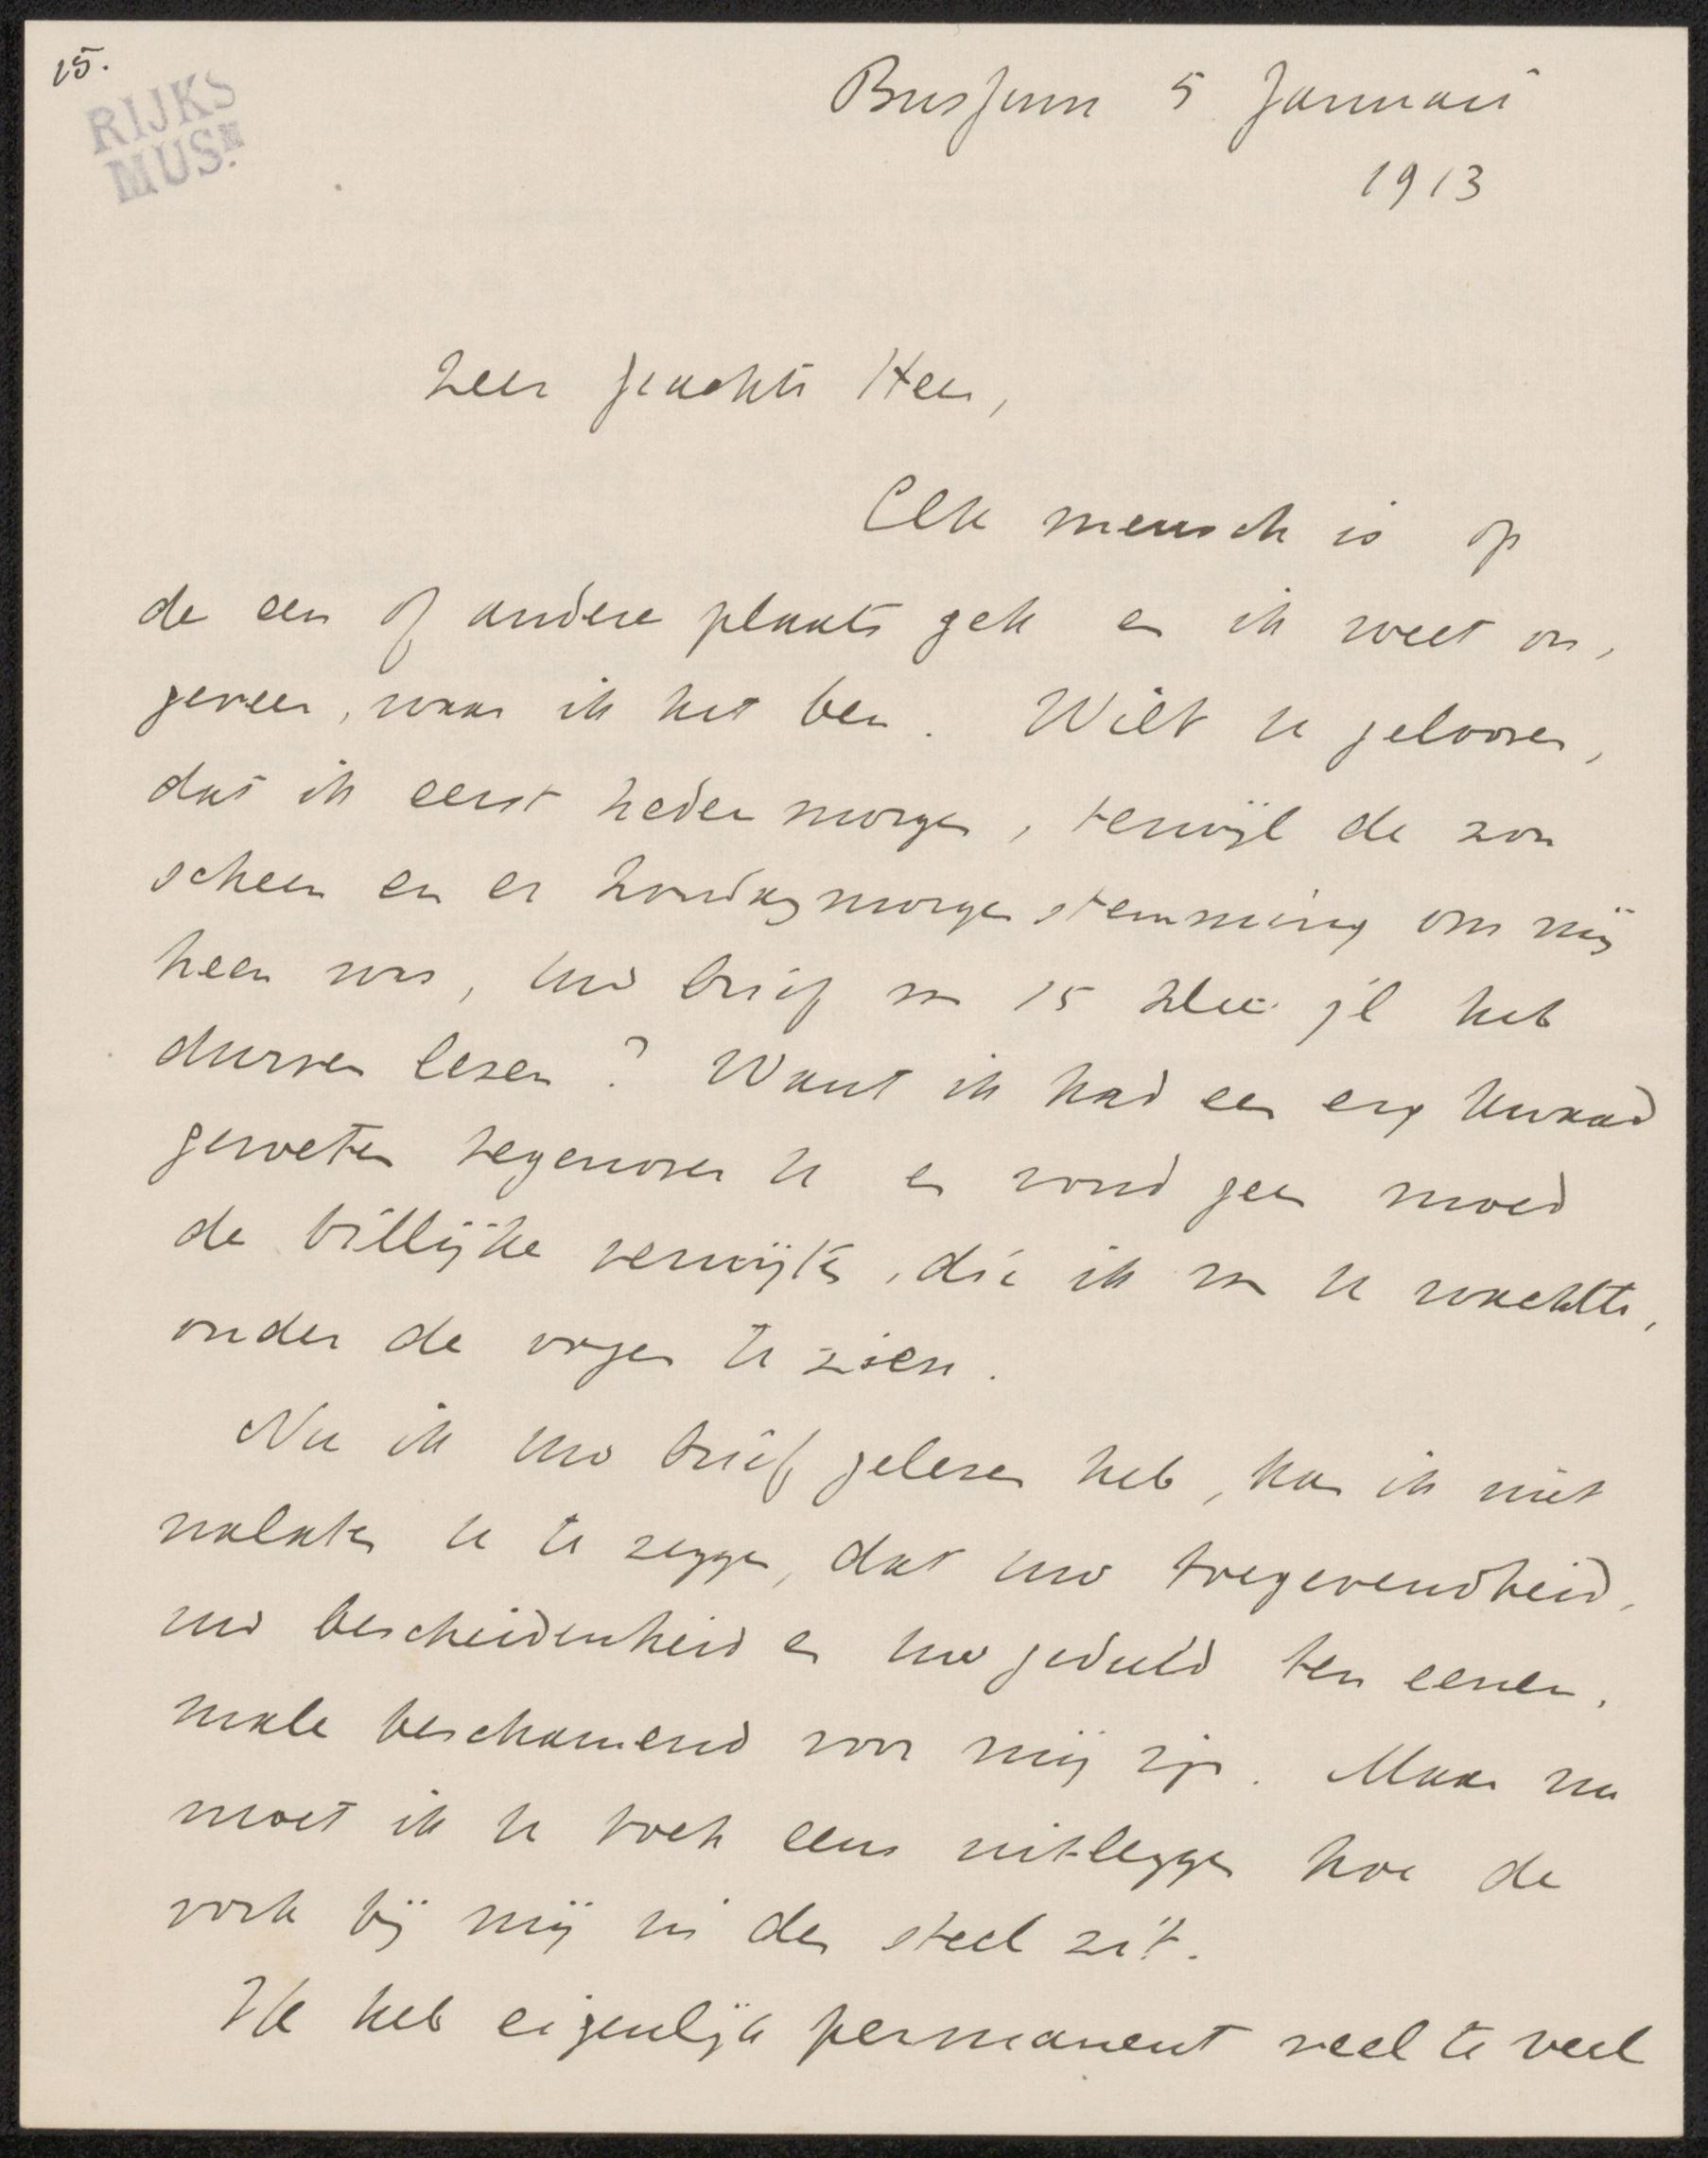 15.
RIJKS
MUS.M
Bussum 5 Januari
1913
Zeer geachte Heer,
Elk mensch is op
de een of andere plaats gek en ik weet on,
geveer, waar ik het ben. Wilt U gelooven,
dat ik eerst heden morgen, terwijl de zon
scheen en er Zondagmorgenstemming om mij
heen was, uw brief van 15 Dec. jl heb
durven lezen? Want ik had een erg kwaad
geweten tegenover U en vond geen moed
de billijke verwijten, die ik van U wachtte,
onder de oogen te zien.
Nu ik uw brief gelezen heb, kan ik niet
nalaten U te zeggen, dat uw toegevendheid,
uw bescheidenheid en uw geduld ten eenen,
male beschamend voor mij zijn. Maar nu
moet ik U toch eens uitleggen hoe de
vork bij mij in den steel zit.
Ik heb eigenlijk permanent veel te veel